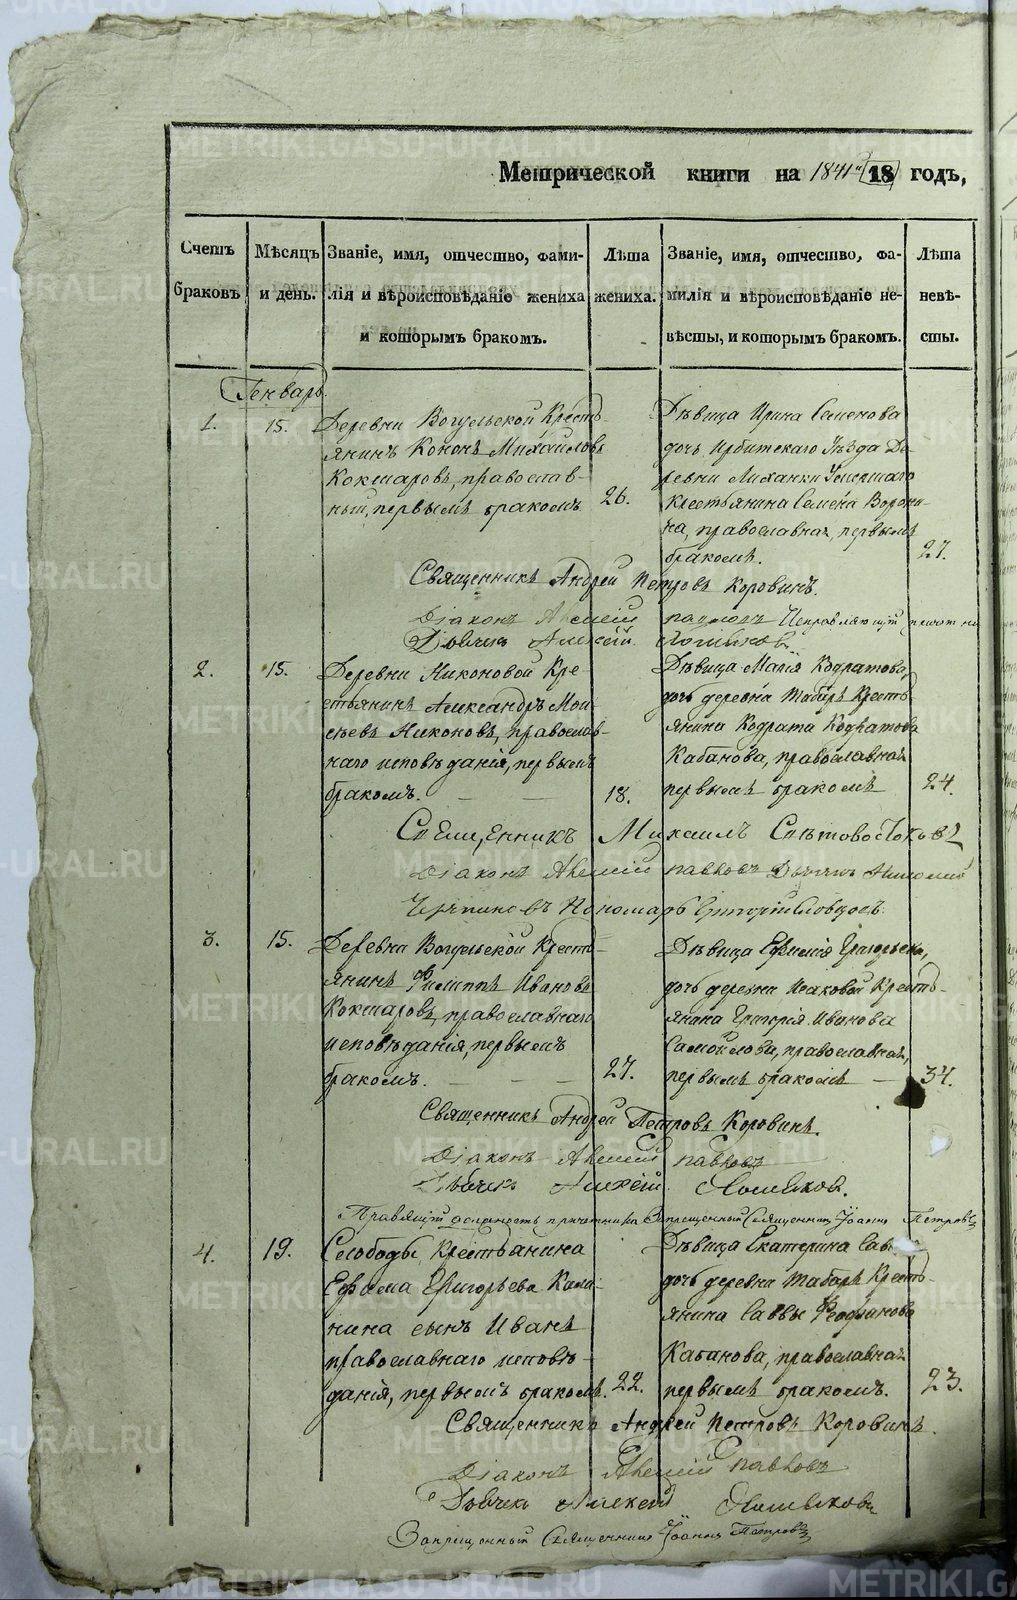 Метрической книги на 1841й 18 годъ,
Счетъ браковъ
Мѣсяцъ и день.
Званіе, имя, отчество, фамилія и вѣроисповѣданіе жениха и которымъ бракомъ.
Лѣта жениха.
Званіе, имя, отчество, фамилія и вѣроисповѣданіе невѣсты, и которымъ бракомъ.
Лѣта невѣсты.
Генварь
1.
15.
Деревни Вогульской Кресть-
янинъ Кононъ Михайловъ
Кокшаровъ, православ-
ный, первымъ бракомъ
26.
Дѣвица Ирина Семенова
дочь Ирбитскаго Уѣзда Де-
ревни Лиханки Умершаго
Крестьянина Семена Ворони-
на, православная, первымъ
бракомъ.
27.
Священникъ Андрей Петровъ Коровинъ.
Діаконъ Алексій
Дьячекъ Алексѣй
2.
15.
Деревни Никоновой Кре-
стьянинъ Александръ Мои-
сѣевъ Никоновъ, православ-
наго исповѣданія, первымъ
бракомъ.
18.
Дѣвица Марія Кодратова,
дочь деревни Табаръ Кресть-
янина Кодрата Кодратова
Кабанова, православная
первымъ бракомъ
24.
Священникъ Михаилъ Свѣтовостоковъ
Діаконъ Алексій Павловъ Дьячекъ
Пономарь Григорій Словцовъ
3.
15.
Деревни Вогульской Кресть-
янинъ Филиппъ Ивановъ
Кокшаровъ, православнаго
исповѣданія, первымъ
бракомъ.
27.
Дѣвица Ефимія Григорьева,
дочь деревни Исаковой Кресть-
янина Григорія Иванова
Самойлова, православная,
первымъ бракомъ
34.
Священникъ Андрей Петровъ Коровинъ.
Діаконъ Алексій Павловъ
Дьячекъ Алексѣй
Правящій должность причетника Запрещенный Священникъ Іоаннъ Петровъ
4.
19.
Слободы Крестьянина
Ефима Григорьева Кали-
нина сынъ Иванъ
православнаго исповѣ-
данія, первымъ бракомъ.
22.
Дѣвица Екатерина
дочь деревни Табаръ Кресть-
янина Саввы
Кабанова, православная
первымъ бракомъ.
23.
Священникъ Андрей Петровъ Коровинъ.
Діаконъ Алексій Павловъ
Дьячекъ Алексѣй
Запрещенный Священникъ Іоаннъ Петровъ
METRIKI.GASO-URAL.RU